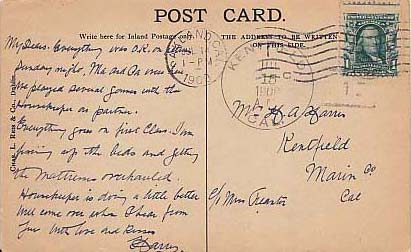 POST CARD.
Write here for Inland Postage only.
THE ADDRESS TO BE WRITTEN
ON THIS SIDE.
My Dear. Everything was O.K. on
Sunday night. Ma and Pa were
We played several games with the
Housekeeper as partner.
Everything goes on first Class. I'm
fixing up the beds and getting
the mattresses overhauled.
Housekeeper is doing a little better
Will come over when I hear from
you. With love and kisses
Harry
Chas. L. Ross & Co. Dublin.
1-PM
1908
KENTFIELD
15
CAL.
Mrs. H. A. Harris
Kentfield
Marin Co
Cal
C/o Miss